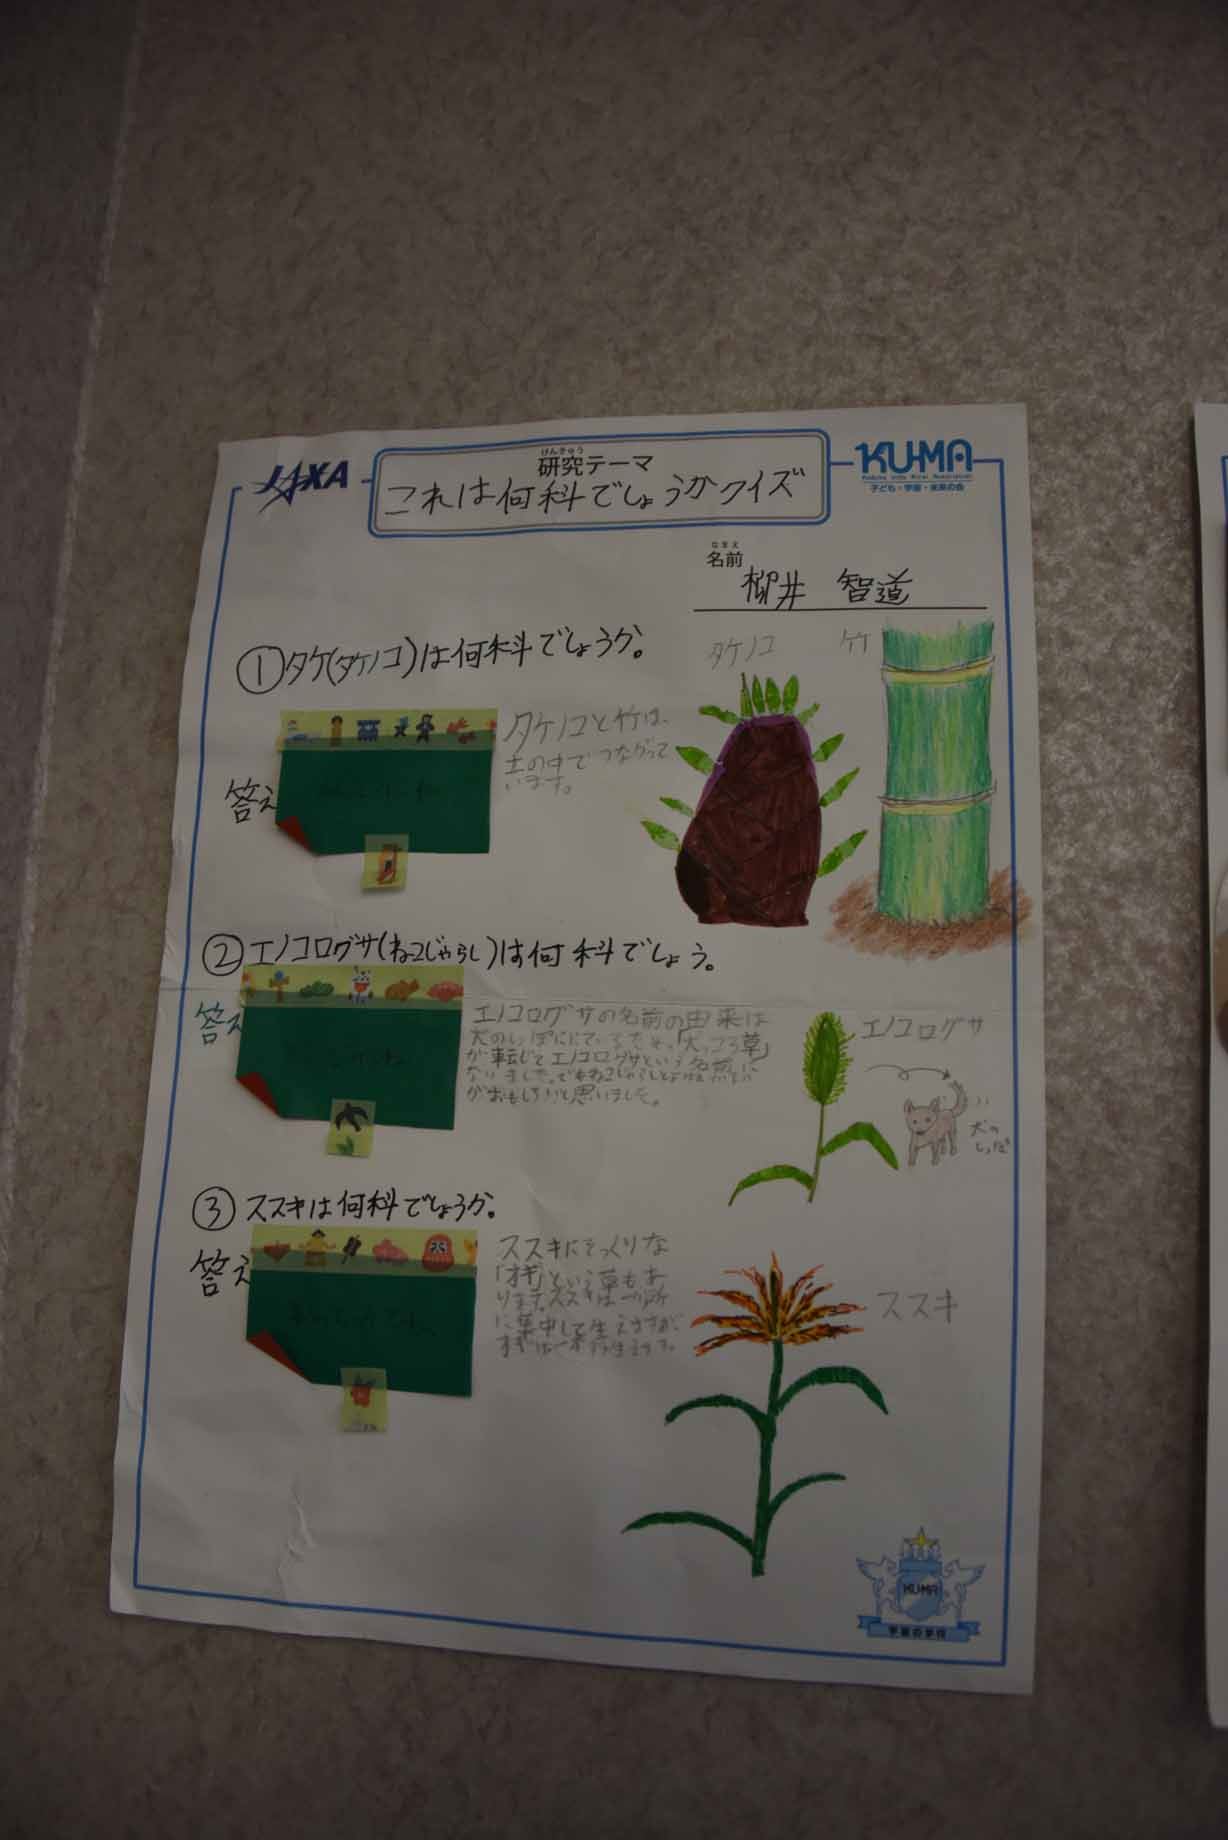 JAXA
けんきゅう
研究テーマ
これは何科でしょうかクイズ
KU-MA
子ども・宇宙・未来の会
なまえ
名前
柳井 智道
①タケ(タケノコ)は何科でしょうか。
タケノコ
竹
答え
タケノコと竹は、
土の中でつながって
います。
②エノコログサ(ねこじゃらし)は何科でしょう。
答え
エノコログサの名前の由来は
犬のしっぽににているため、「犬っころ草」
が転じてエノコログサという名前に
なりました。でもねこじゃらしと
がおもしろいと思いました。
エノコログサ
犬の
しっぽ
③ススキは何科でしょうか。
答え
ススキにそっくりな
「オギ」という草もあ
ります。ススキは一か所
に集中して生えますが
オギは
ススキ
KU-MA
宇宙の学校